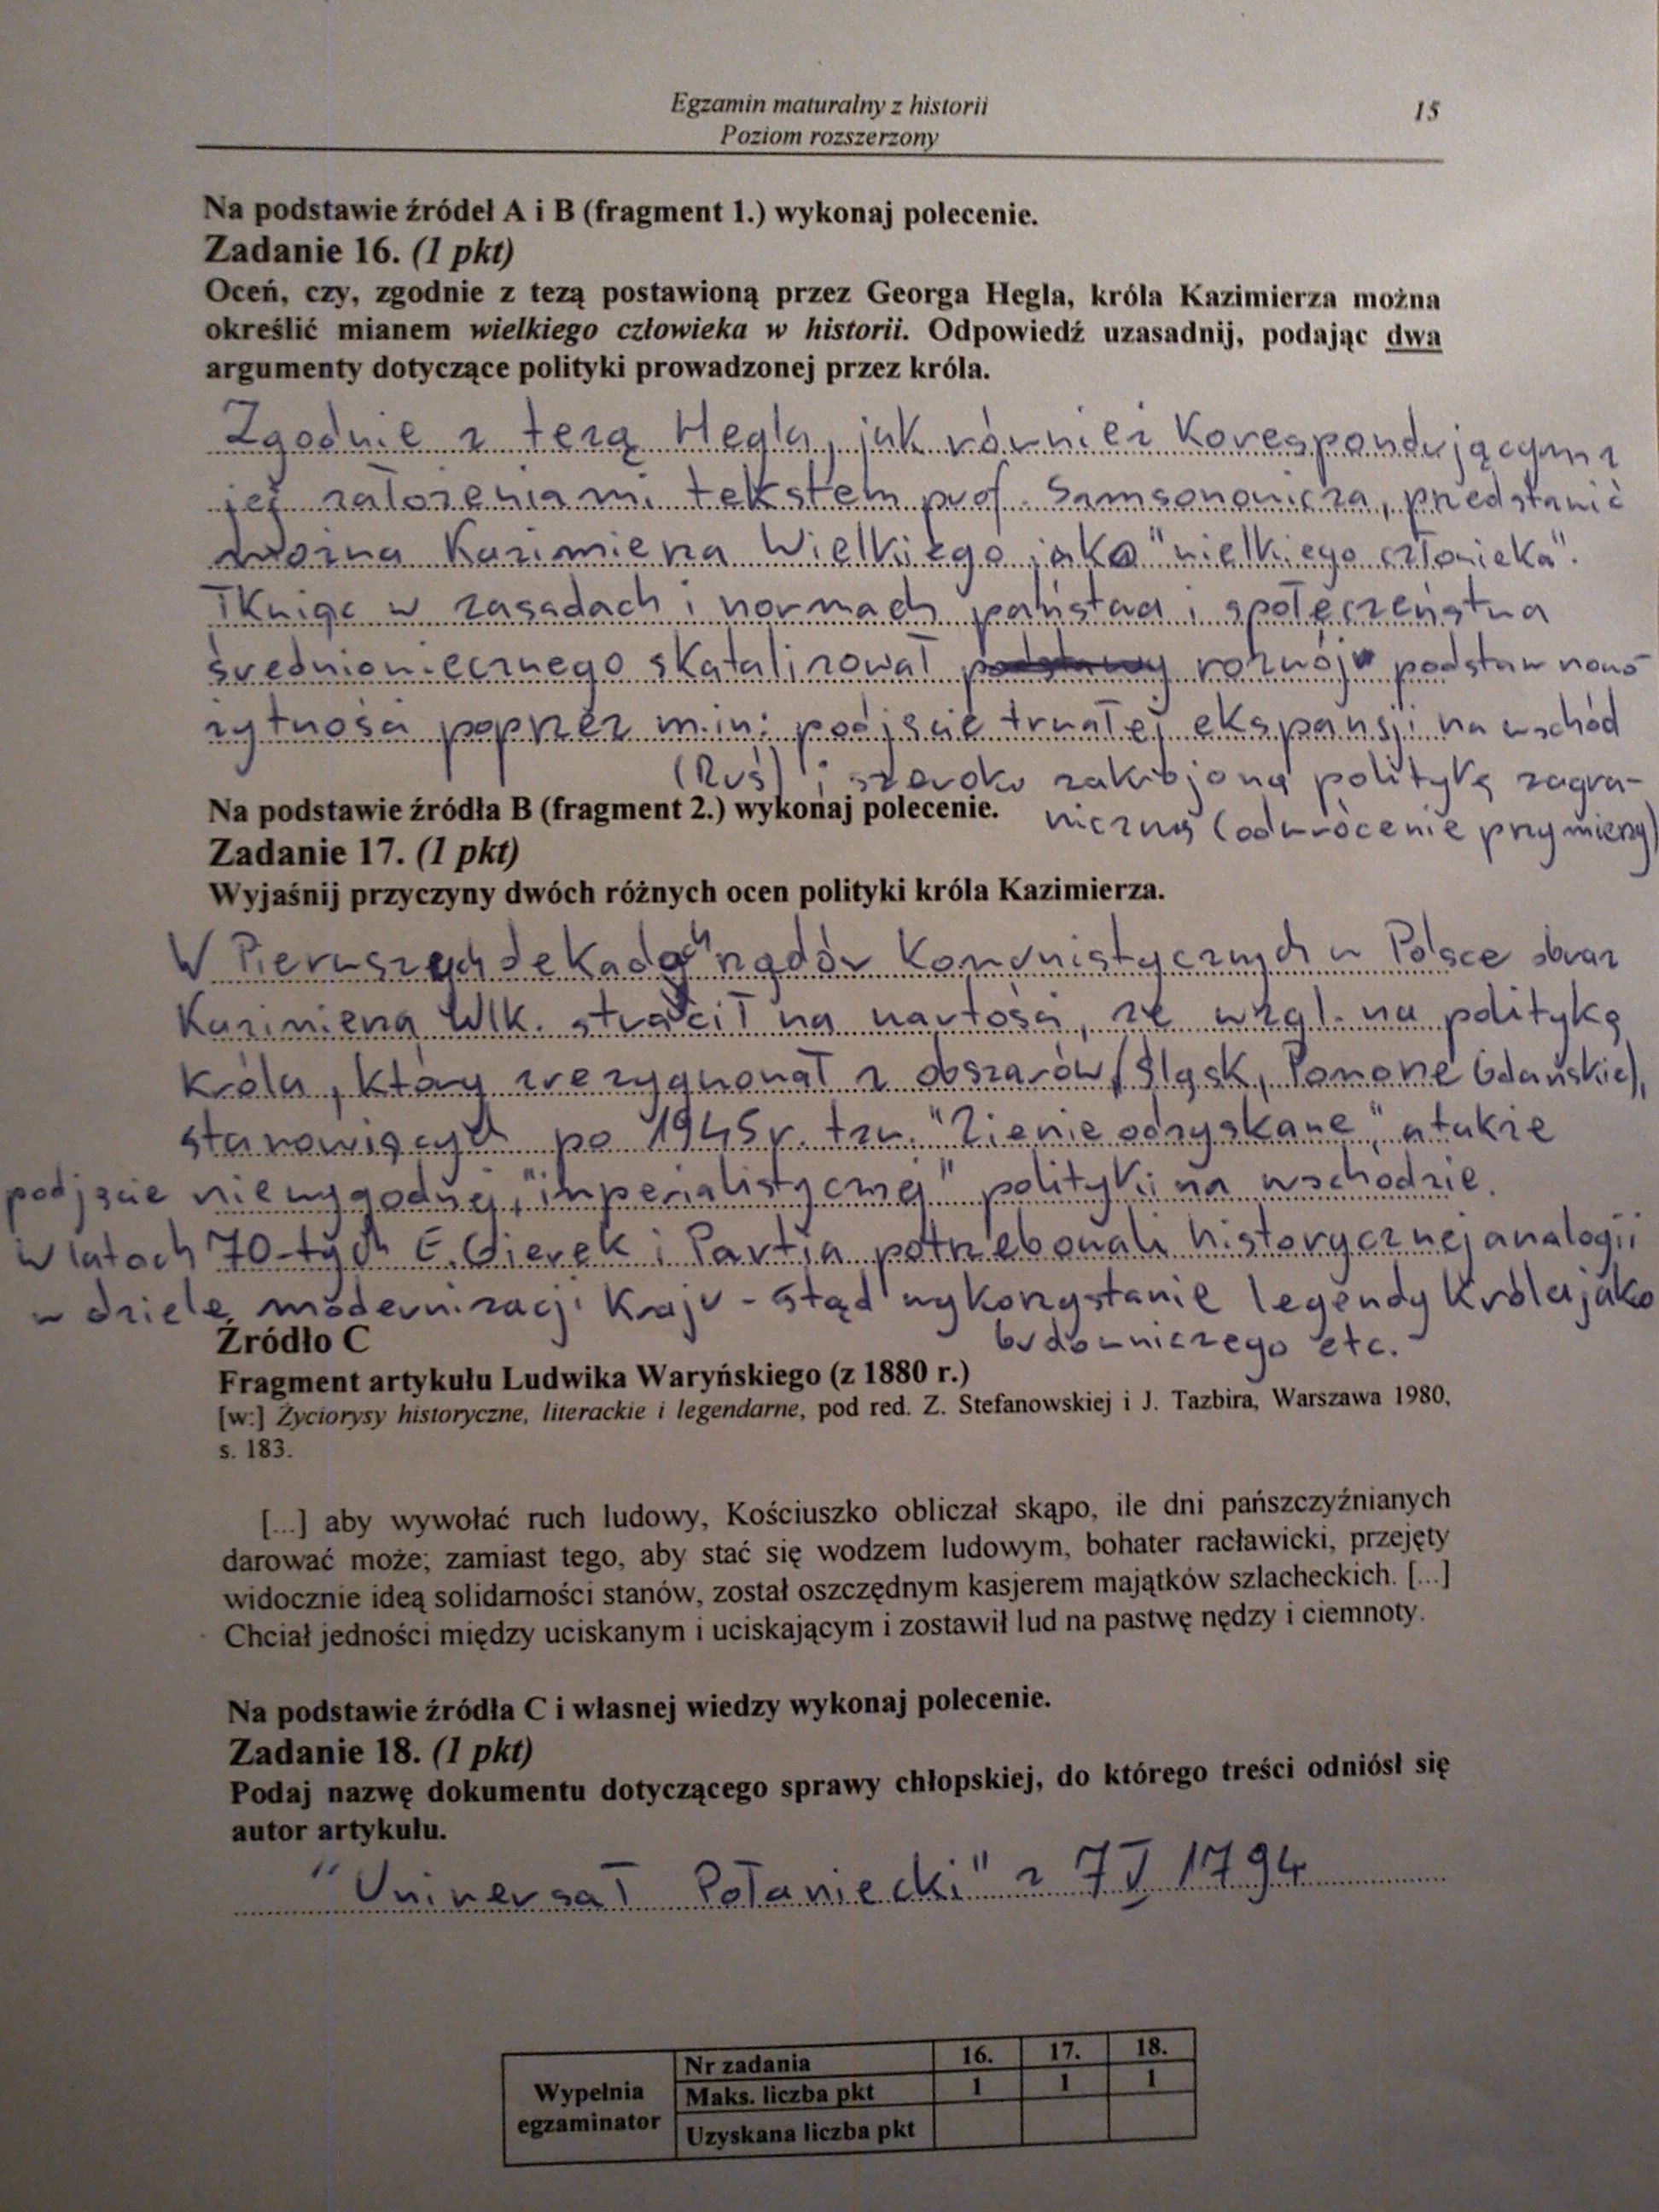 Egzamin maturalny z historii 15
Poziom rozszerzony
Na podstawie źródeł A i B (fragment 1.) wykonaj polecenie.
Zadanie 16. (1 pkt)
Oceń, czy, zgodnie z tezą postawioną przez Georga Hegla, króla Kazimierza można
określić mianem wielkiego człowieka w historii. Odpowiedź uzasadnij, podając dwa
argumenty dotyczące polityki prowadzonej przez króla.
Zgodnie z tezą Hegla, jak również korespondującym z
jej założeniami tekstem prof. Samsonowicza, przedstawić
można Kazimierza Wielkiego jako "wielkiego człowieka".
Tkwiąc w zasadach i normach państwa i społeczeństwa
średniowiecznego skatalizował rozwój podstaw nowo-
żytności poprzez m.in: podjęcie trwałej ekspansji na wschód
(Ruś) i szeroko zakrojoną politykę zagra-
niczną (odwrócenie przymierzy)
Na podstawie źródła B (fragment 2.) wykonaj polecenie.
Zadanie 17. (1 pkt)
Wyjaśnij przyczyny dwóch różnych ocen polityki króla Kazimierza.
W Pierwszych dekadach rządów komunistycznych w Polsce obraz
Kazimierza Wlk. stracił na wartości, ze wzgl. na politykę
króla, który zrezygnował z obszarów (Śląsk, Pomorze Gdańskie),
stanowiących po 1945r. tzw. "Ziemie odzyskane", a także
podjęcie niewygodnej, "imperialistycznej" polityki na wschodzie.
W latach 70-tych E. Gierek i Partia potrzebowali historycznej analogii
w dziele modernizacji kraju - stąd wykorzystanie legendy króla jako
budowniczego etc.
Źródło C
Fragment artykułu Ludwika Waryńskiego (z 1880 r.)
[w:] Życiorysy historyczne, literackie i legendarne, pod red. Z. Stefanowskiej i J. Tazbira, Warszawa 1980,
s. 183.
[...] aby wywołać ruch ludowy, Kościuszko obliczał skąpo, ile dni pańszczyźnianych
darować może; zamiast tego, aby stać się wodzem ludowym, bohater racławicki, przejęty
widocznie ideą solidarności stanów, został oszczędnym kasjerem majątków szlacheckich. [...]
Chciał jedności między uciskanym i uciskającym i zostawił lud na pastwę nędzy i ciemnoty.
Na podstawie źródła C i własnej wiedzy wykonaj polecenie.
Zadanie 18. (1 pkt)
Podaj nazwę dokumentu dotyczącego sprawy chłopskiej, do którego treści odniósł się
autor artykułu.
"Uniwersał Połaniecki" z 7 V 1794
Wypełnia egzaminator
Nr zadania 16. 17. 18.
Maks. liczba pkt 1 1 1
Uzyskana liczba pkt